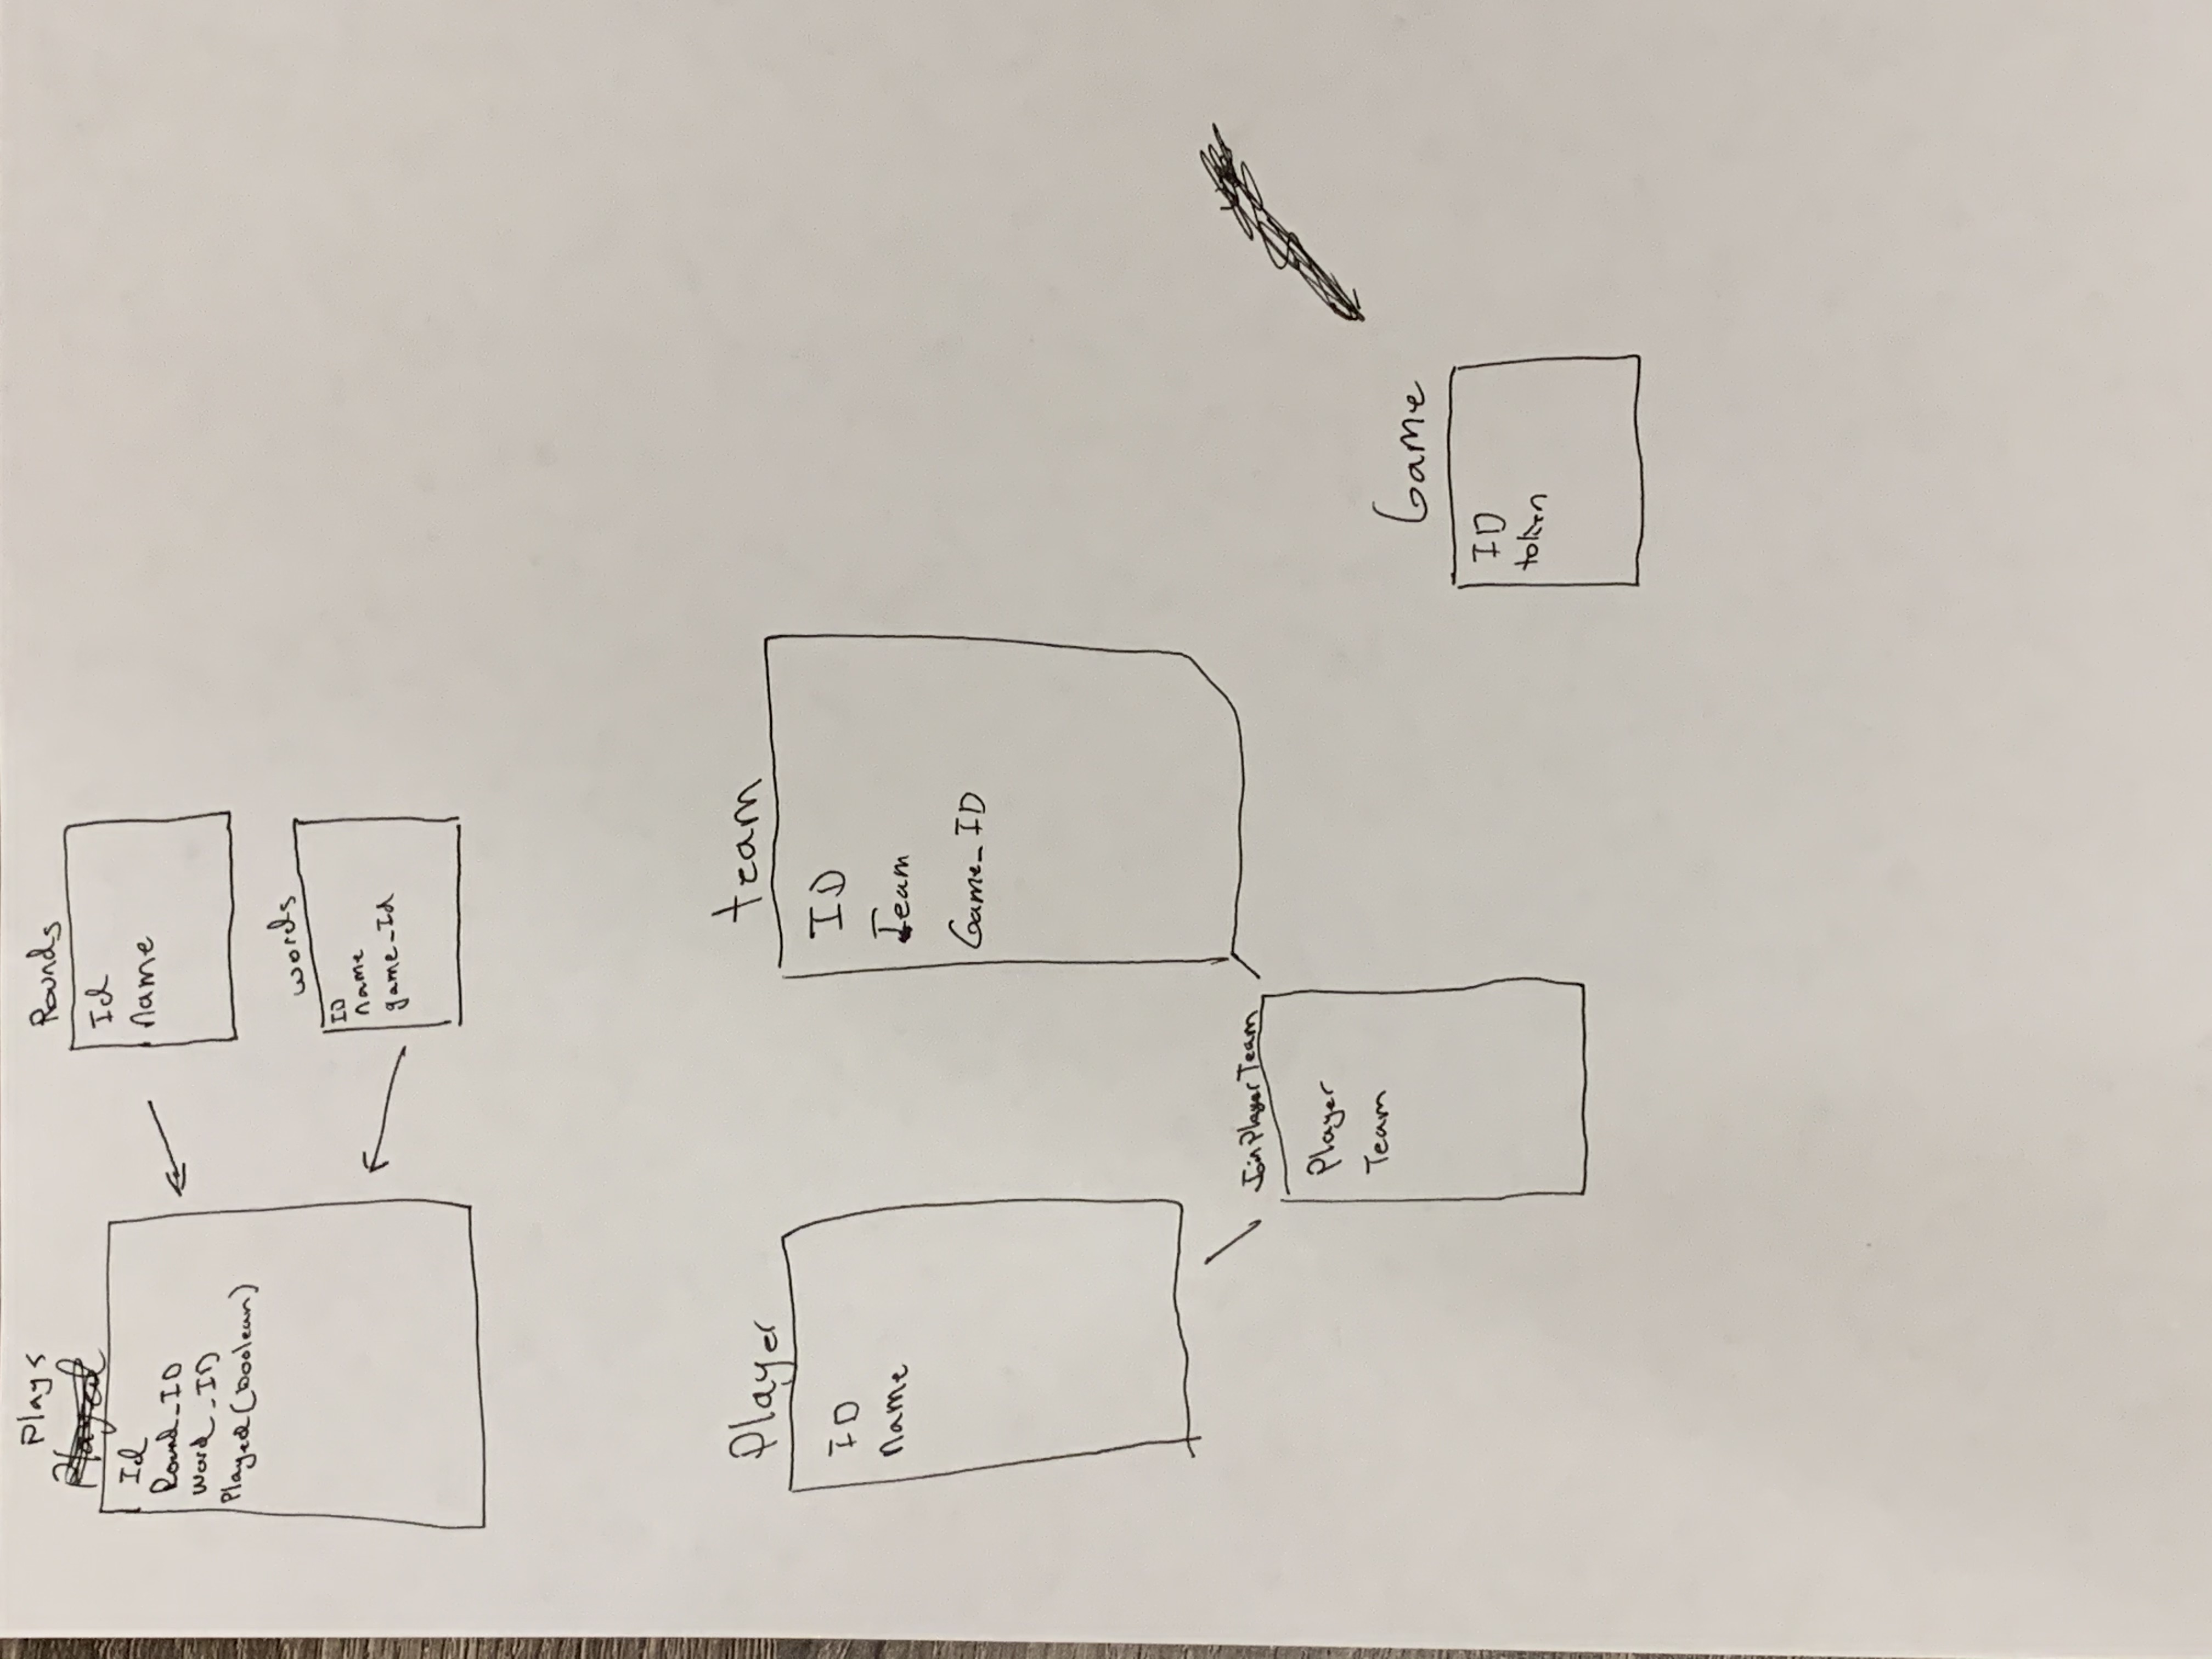 Plays
Played
Id
Round_ID
word_ID
Played(boolean)
Rounds
Id
name
words
ID
name
game_Id
Player
ID
name
team
ID
Team
Game_ID
JoinPlayerTeam
Player
Team
Game
ID
token